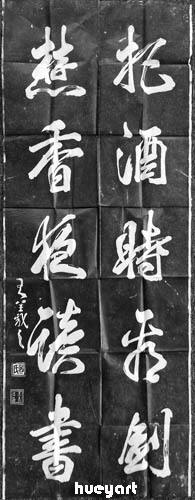 把酒時看劍
焚香夜讀書
王羲之
hueyart